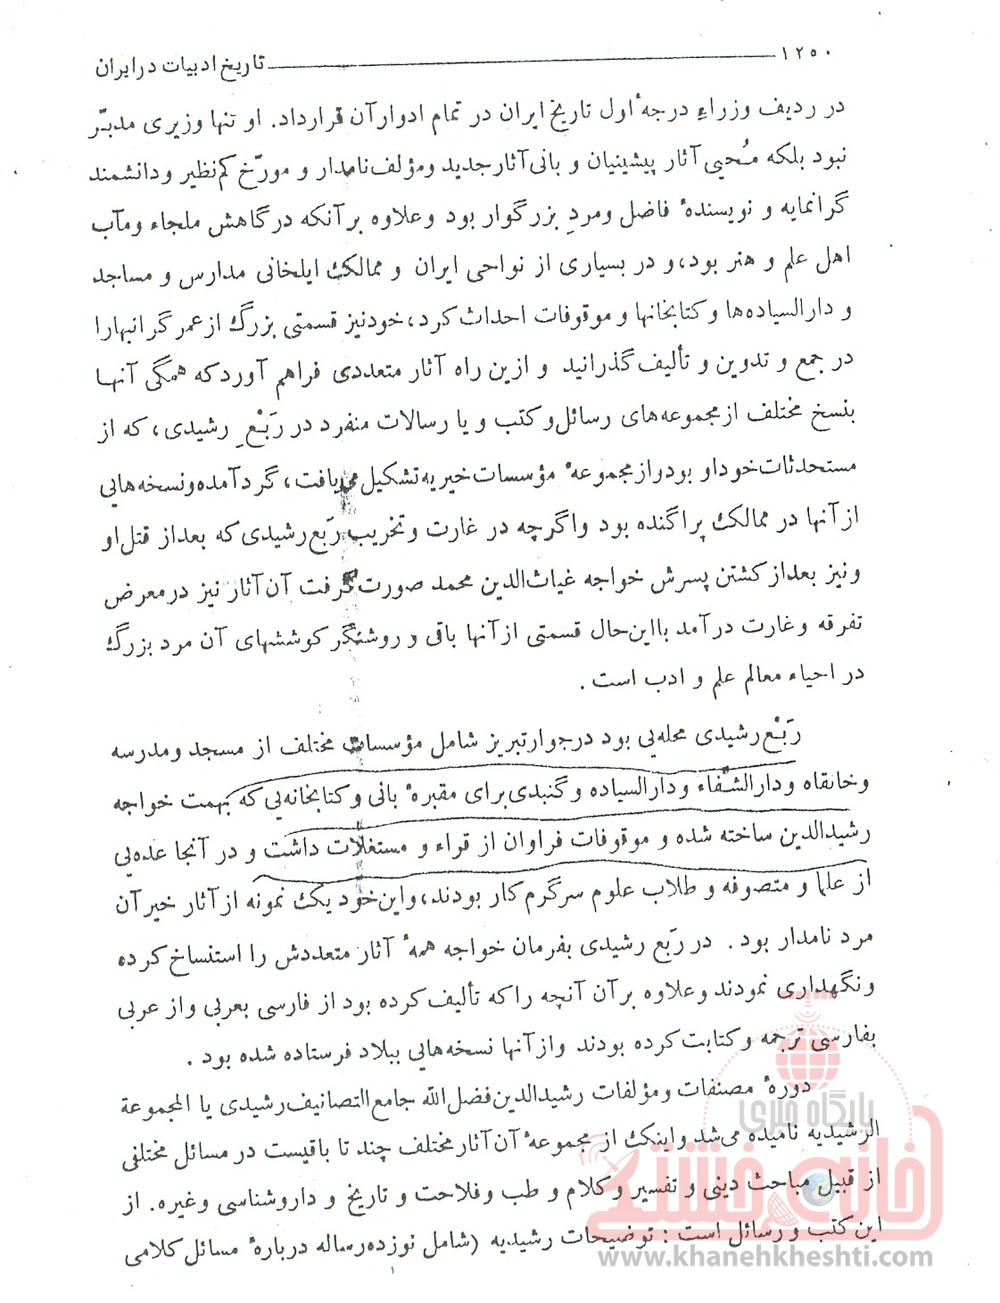 ۱۲۵۰ تاریخ ادبیات در ایران
در ردیف وزراءِ درجهٔ اول تاریخ ایران در تمام ادوار آن قرارداد. او تنها وزیری مدبّر
نبود بلکه مُحیی آثار پیشینیان و بانی آثار جدید ومؤلف نامدار و مورّخ کم‌نظیر و دانشمند
گرانمایه و نویسندهٔ فاضل ومردِ بزرگوار بود وعلاوه بر آنکه درگاهش ملجاء ومآب
اهل علم و هنر بود، و در بسیاری از نواحی ایران و ممالک ایلخانی مدارس و مساجد
و دارالسیاده‌ها و کتابخانها و موقوفات احداث کرد، خودنیز قسمتی بزرگ از عمر گرانبهارا
در جمع و تدوین و تألیف گذرانید و ازین راه آثار متعددی فراهم آورد که همگی آنها
بنسخ مختلف از مجموعه‌های رسائل و کتب و یا رسالات منفرد در رَبْعِ رشیدی، که از
مستحدثات خود او بود و از مجموعهٔ مؤسسات خیریه تشکیل می‌یافت، گرد آمده و نسخه‌هایی
از آنها در ممالک پراگنده بود واگرچه در غارت وتخریب رَبع رشیدی که بعد از قتل او
ونیز بعد از کشتن پسرش خواجه غیاث‌الدین محمد صورت گرفت آن آثار نیز در معرض
تفرقه وغارت درآمد بااین‌حال قسمتی از آنها باقی و روشنگر کوششهای آن مرد بزرگ
در احیاء معالم علم و ادب است .
رَبْع رشیدی محله‌یی بود در جوار تبریز شامل مؤسسات مختلف از مسجد ومدرسه
وخانقاه ودارالشّفاء ودارالسیاده وگنبدی برای مقبرهٔ بانی وکتابخانه‌یی که بهمت خواجه
رشیدالدین ساخته شده و موقوفات فراوان از قراء و مستغلات داشت و در آنجا عده‌یی
از علما و متصوفه و طلاب علوم سرگرم کار بودند، واین خود یک نمونه از آثار خیر آن
مرد نامدار بود . در رَبع رشیدی بفرمان خواجه همهٔ آثار متعددش را استنساخ کرده
ونگهداری نمودند وعلاوه بر آن آنچه را که تألیف کرده بود از فارسی بعربی واز عربی
بفارسی ترجمه وکتابت کرده بودند وازآنها نسخه‌هایی ببلاد فرستاده شده بود .
دورهٔ مصنفات ومؤلفات رشیدالدین فضل‌الله جامع‌التصانیف رشیدی یا المجموعة
الرشیدیه نامیده می‌شد واینک از مجموعهٔ آن آثار مختلف چند تا باقیست در مسائل مختلفی
از قبیل مباحث دینی و تفسیر و کلام و طب وفلاحت و تاریخ و داروشناسی وغیره. از
این کتب و رسائل است : توضیحات رشیدیه (شامل نوزده رساله دربارهٔ مسائل کلامی
پایگاه خبری
خانه خشتی
www.khanehkheshti.com